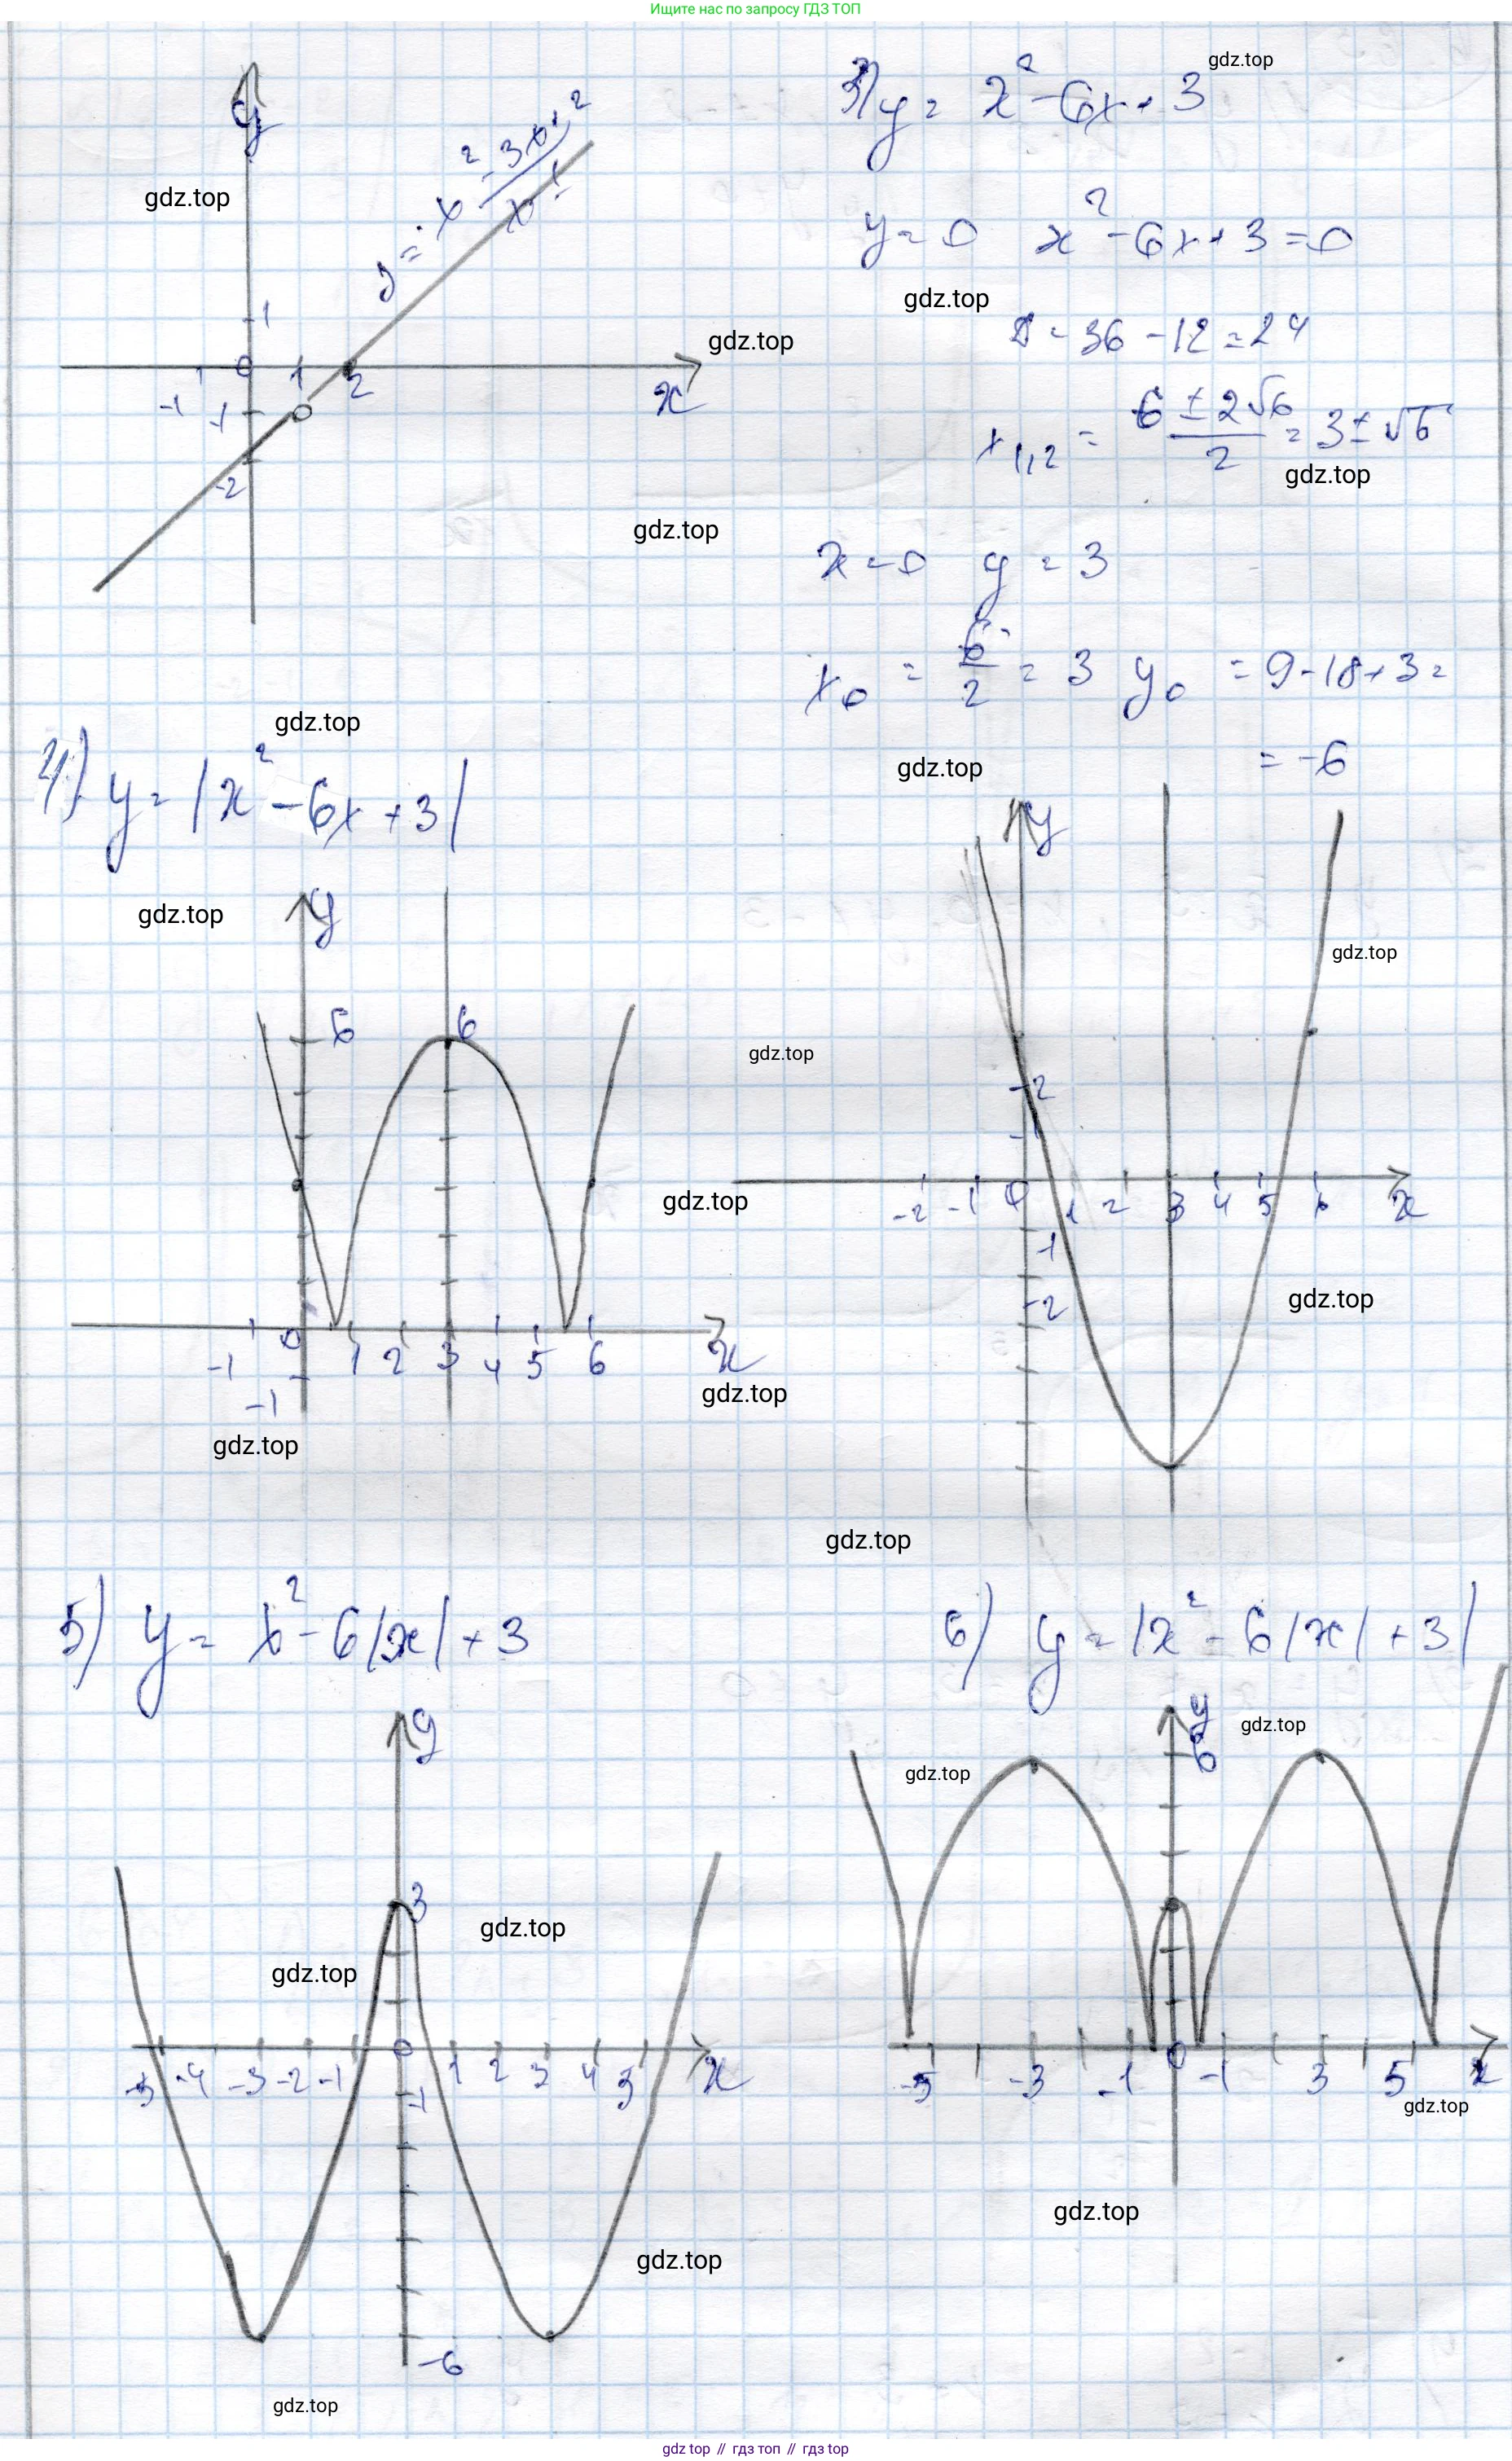 Ищите нас по запросу ГДЗ ТОП
gdz.top
y
y = x² - 3x + 2 / x - 1
gdz.top
1
0
-1 1 2
x
gdz.top
-1
-2
gdz.top
3) y = x² - 6x + 3
y = 0 x² - 6x + 3 = 0
gdz.top
D = 36 - 12 = 24
x1,2 = 6 ± 2√6 / 2 = 3 ± √6
gdz.top
x = 0 y = 3
x0 = 6/2 = 3 y0 = 9 - 18 + 3 =
= -6
gdz.top
y
gdz.top
gdz.top
2
1
-2 -1 0 1 2 3 4 5 6 x
gdz.top
-1
-2
gdz.top
gdz.top
4) y = |x² - 6x + 3|
gdz.top
y
gdz.top
6 6
-1 0 1 2 3 4 5 6 x
gdz.top
-1
gdz.top
gdz.top
5) y = x² - 6|x| + 3
y
3
gdz.top
gdz.top
0
-5 -4 -3 -2 -1 1 2 3 4 5 x
-1
gdz.top
-6
gdz.top
6) y = |x² - 6|x| + 3|
y
gdz.top
6
gdz.top
0
-5 -3 -1 -1 3 5 x
gdz.top
gdz.top
gdz.top // гдз топ // гдз top